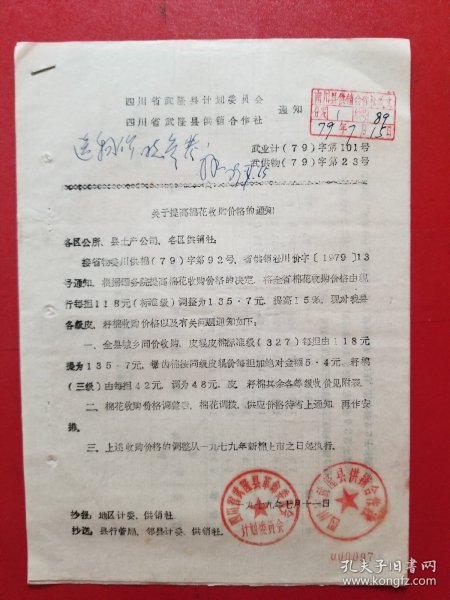 四川省武隆县计划委员会
四川省武隆县供销合作社
通知
南川县供销合作社收文
89
79年7月15日
武业计(79)字第101号
武供物(79)字第23号
关于提高棉花收购价格的通知
各区公所、县土产公司、各区供销社:
接省物委川供棉(79)字第92号、省供销社川价字〔1979〕13
号通知,根据国务院提高棉花收购价格的决定,将全省棉花收购价格由现
行每担118元(标准级)调整为135·7元,提高15%。现对我县
各级皮、籽棉收购价格以及有关问题通知如下:
一、全县城乡同价收购,皮棍皮棉标准级(327)每担由118元
提为135·7元,锯齿棉按同级皮棍价每担加绝对金额5·4元,籽棉
(三级)由每担42元,调为48元,皮、籽棉其余各等级收价见附表。
二、棉花收购价格调整后,棉花调拨、供应价格待省上通知,再作安
排。
三、上述收购价格的调整从一九七九年新棉上市之日起执行。
四川省武隆县革命委员会
计划委员会
四川省武隆县供销合作社
一九七九年七月十一日
抄报:地区计委、供销社。
抄送:县行管局、邻县计委、供销社。
000007
孔夫子旧书网